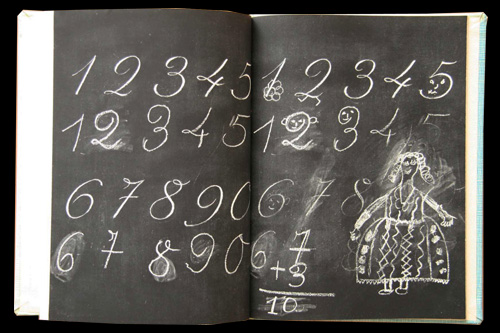 1 2 3 4 5
1 2 3 4 5
6 7 8 9 0
6 7 8 9 0
1 2 3 4 5
1 2 3 4 5
6 7 8
6 7
+3
10